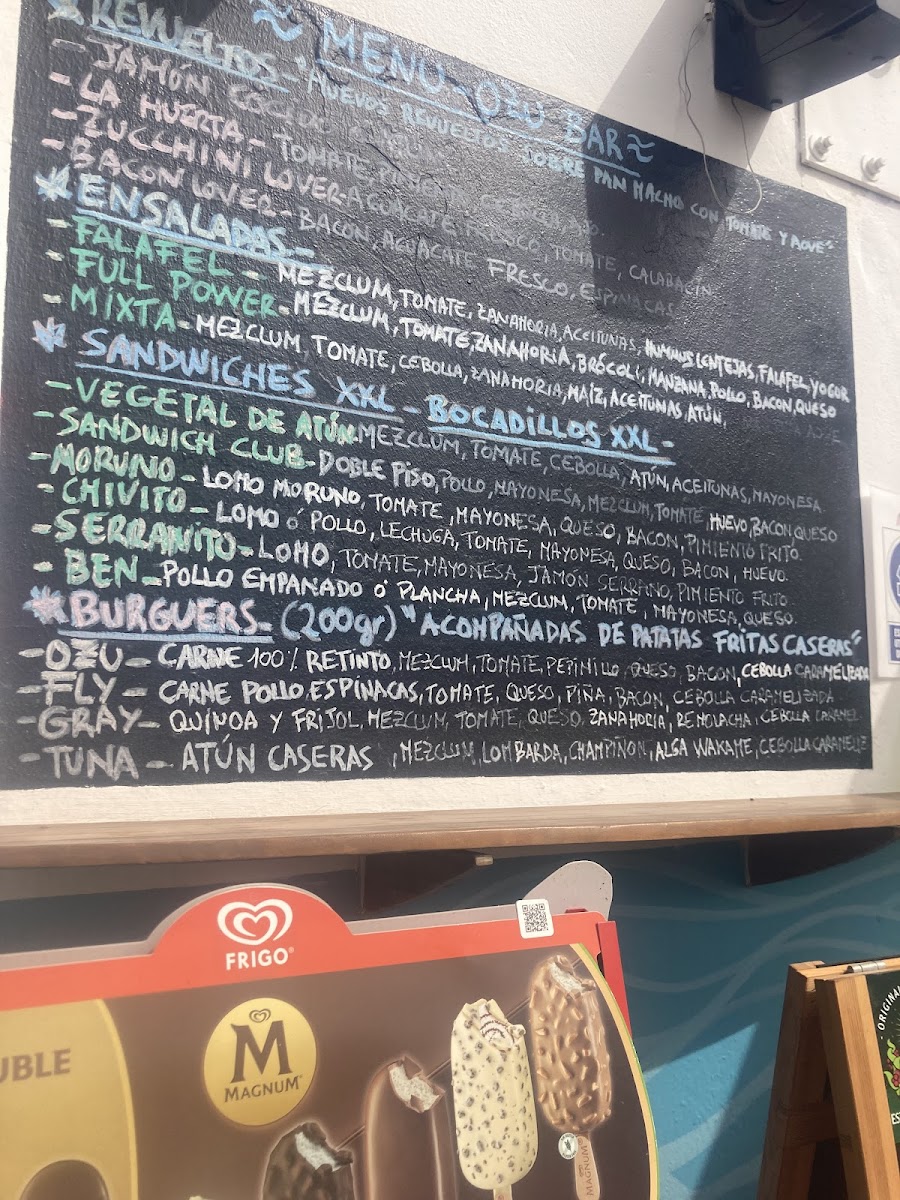 ≈ MENU - OZU BAR ≈
* REVUELTOS - "HUEVOS REVUELTOS SOBRE PAN MACHO CON TOMATE Y AOVE"
- JAMÓN COCIDO
- LA HUERTA - TOMATE, PIMIENTO
- ZUCCHINI LOVER - AGUACATE FRESCO, TOMATE, CALABACÍN
- BACON LOVER - BACON, AGUACATE FRESCO, ESPINACAS
* ENSALADAS -
- FALAFEL - MEZCLUM, TOMATE, ZANAHORIA, ACEITUNAS, HUMMUS LENTEJAS, FALAFEL, YOGOR
- FULL POWER - MEZCLUM, TOMATE, ZANAHORIA, BRÓCOLI, MANZANA, POLLO, BACON, QUESO
- MIXTA - MEZCLUM, TOMATE, CEBOLLA, ZANAHORIA, MAÍZ, ACEITUNAS, ATÚN,
* SANDWICHES XXL - BOCADILLOS XXL -
- VEGETAL DE ATÚN MEZCLUM, TOMATE, CEBOLLA, ATÚN, ACEITUNAS, MAYONESA
- SANDWICH CLUB - DOBLE PISO, POLLO, MAYONESA, MEZCLUM, TOMATE, HUEVO, BACON, QUESO
- MORUNO - LOMO MORUNO, TOMATE, MAYONESA, QUESO, BACON, PIMIENTO FRITO.
- CHIVITO - LOMO Ó POLLO, LECHUGA, TOMATE, MAYONESA, QUESO, BACON, HUEVO.
- SERRANITO - LOMO, TOMATE, MAYONESA, JAMÓN SERRANO, PIMIENTO FRITO.
- BEN - POLLO EMPANADO Ó PLANCHA, MEZCLUM, TOMATE, MAYONESA, QUESO.
* BURGUERS - (200gr) "ACOMPAÑADAS DE PATATAS FRITAS CASERAS"
- OZU - CARNE 100% RETINTO, MEZCLUM, TOMATE, PEPINILLO, QUESO, BACON, CEBOLLA CARAMELIZADA
- FLY - CARNE POLLO ESPINACAS, TOMATE, QUESO, PIÑA, BACON, CEBOLLA CARAMELIZADA
- GRAY - QUINOA Y FRIJOL, MEZCLUM, TOMATE, QUESO, ZANAHORIA, REMOLACHA, CEBOLLA CARAMEL
- TUNA - ATÚN CASERAS, MEZCLUM, LOMBARDA, CHAMPIÑON, ALGA WAKAME, CEBOLLA CARAMELIZE
FRIGO®
UBLE
M
MAGNUM
MAGNUM
ORIGINAL
ES